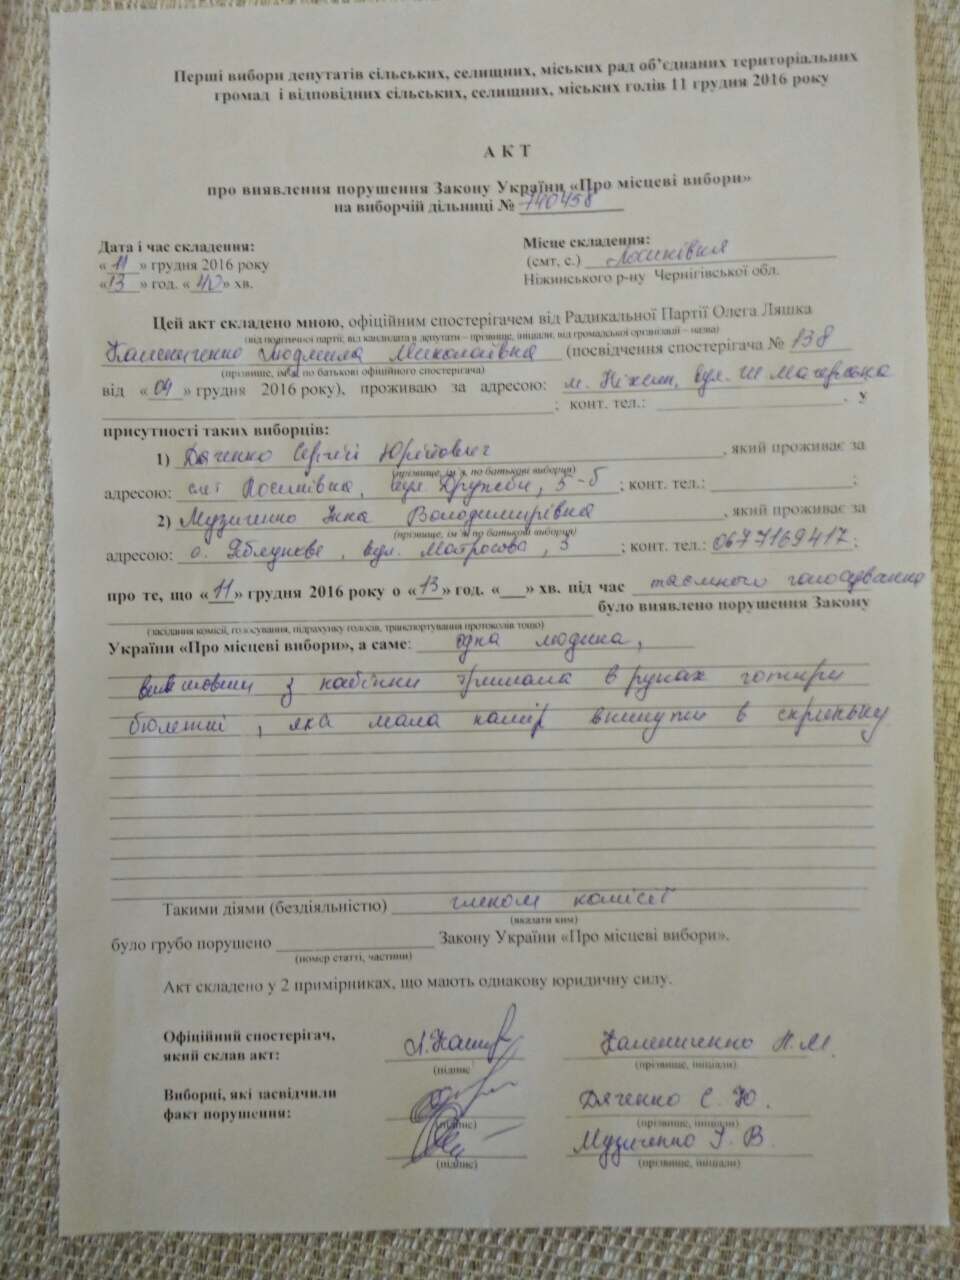 Перші вибори депутатів сільських, селищних, міських рад об'єднаних територіальних
громад і відповідних сільських, селищних, міських голів 11 грудня 2016 року
А К Т
про виявлення порушення Закону України «Про місцеві вибори»
на виборчій дільниці № 740458
Дата і час складення:
« 11 » грудня 2016 року
« 13 » год. « 40 » хв.
Місце складення:
(смт, с.) Лосинівка
Ніжинського р-ну Чернігівської обл.
Цей акт складено мною, офіційним спостерігачем від Радикальної Партії Олега Ляшка
(від політичної партії, від кандидата в депутати – прізвище, ініціали, від громадської організації – назва)
Калениченко Людмила Миколаївна (посвідчення спостерігача № 138
(прізвище, ім'я, по батькові офіційного спостерігача)
від « 04 » грудня 2016 року), проживаю за адресою: м. Ніжин, вул. Ш
; конт. тел.: . У
присутності таких виборців:
1) Дяченко Сергій Юрійович , який проживає за
(прізвище, ім'я, по батькові виборця)
адресою: смт Лосинівка, вул. Дружби, 5-б ; конт. тел.: ;
2) Музиченко Інна Володимирівна , який проживає за
(прізвище, ім'я, по батькові виборця)
адресою: с. Яблуневе, вул. Матросова, 3 ; конт. тел.: 0677169417 ;
про те, що « 11 » грудня 2016 року о « 13 » год. « » хв. під час таємного голосування
було виявлено порушення Закону
(засідання комісії, голосування, підрахунку голосів, транспортування протоколів тощо)
України «Про місцеві вибори», а саме: одна людина,
з кабінки тримала в руках готири
бюлетні, яка мала намір вкинути в скриньку
Такими діями (бездіяльністю) членом комісії
(вказати ким)
було грубо порушено Закону України «Про місцеві вибори».
(номер статті, частини)
Акт складено у 2 примірниках, що мають однакову юридичну силу.
Офіційний спостерігач,
який склав акт: Калениченко Л.М.
(підпис) (прізвище, ініціали)
Виборці, які засвідчили
факт порушення: Дяченко С. Ю.
(підпис) (прізвище, ініціали)
Музиченко І. В.
(підпис) (прізвище, ініціали)